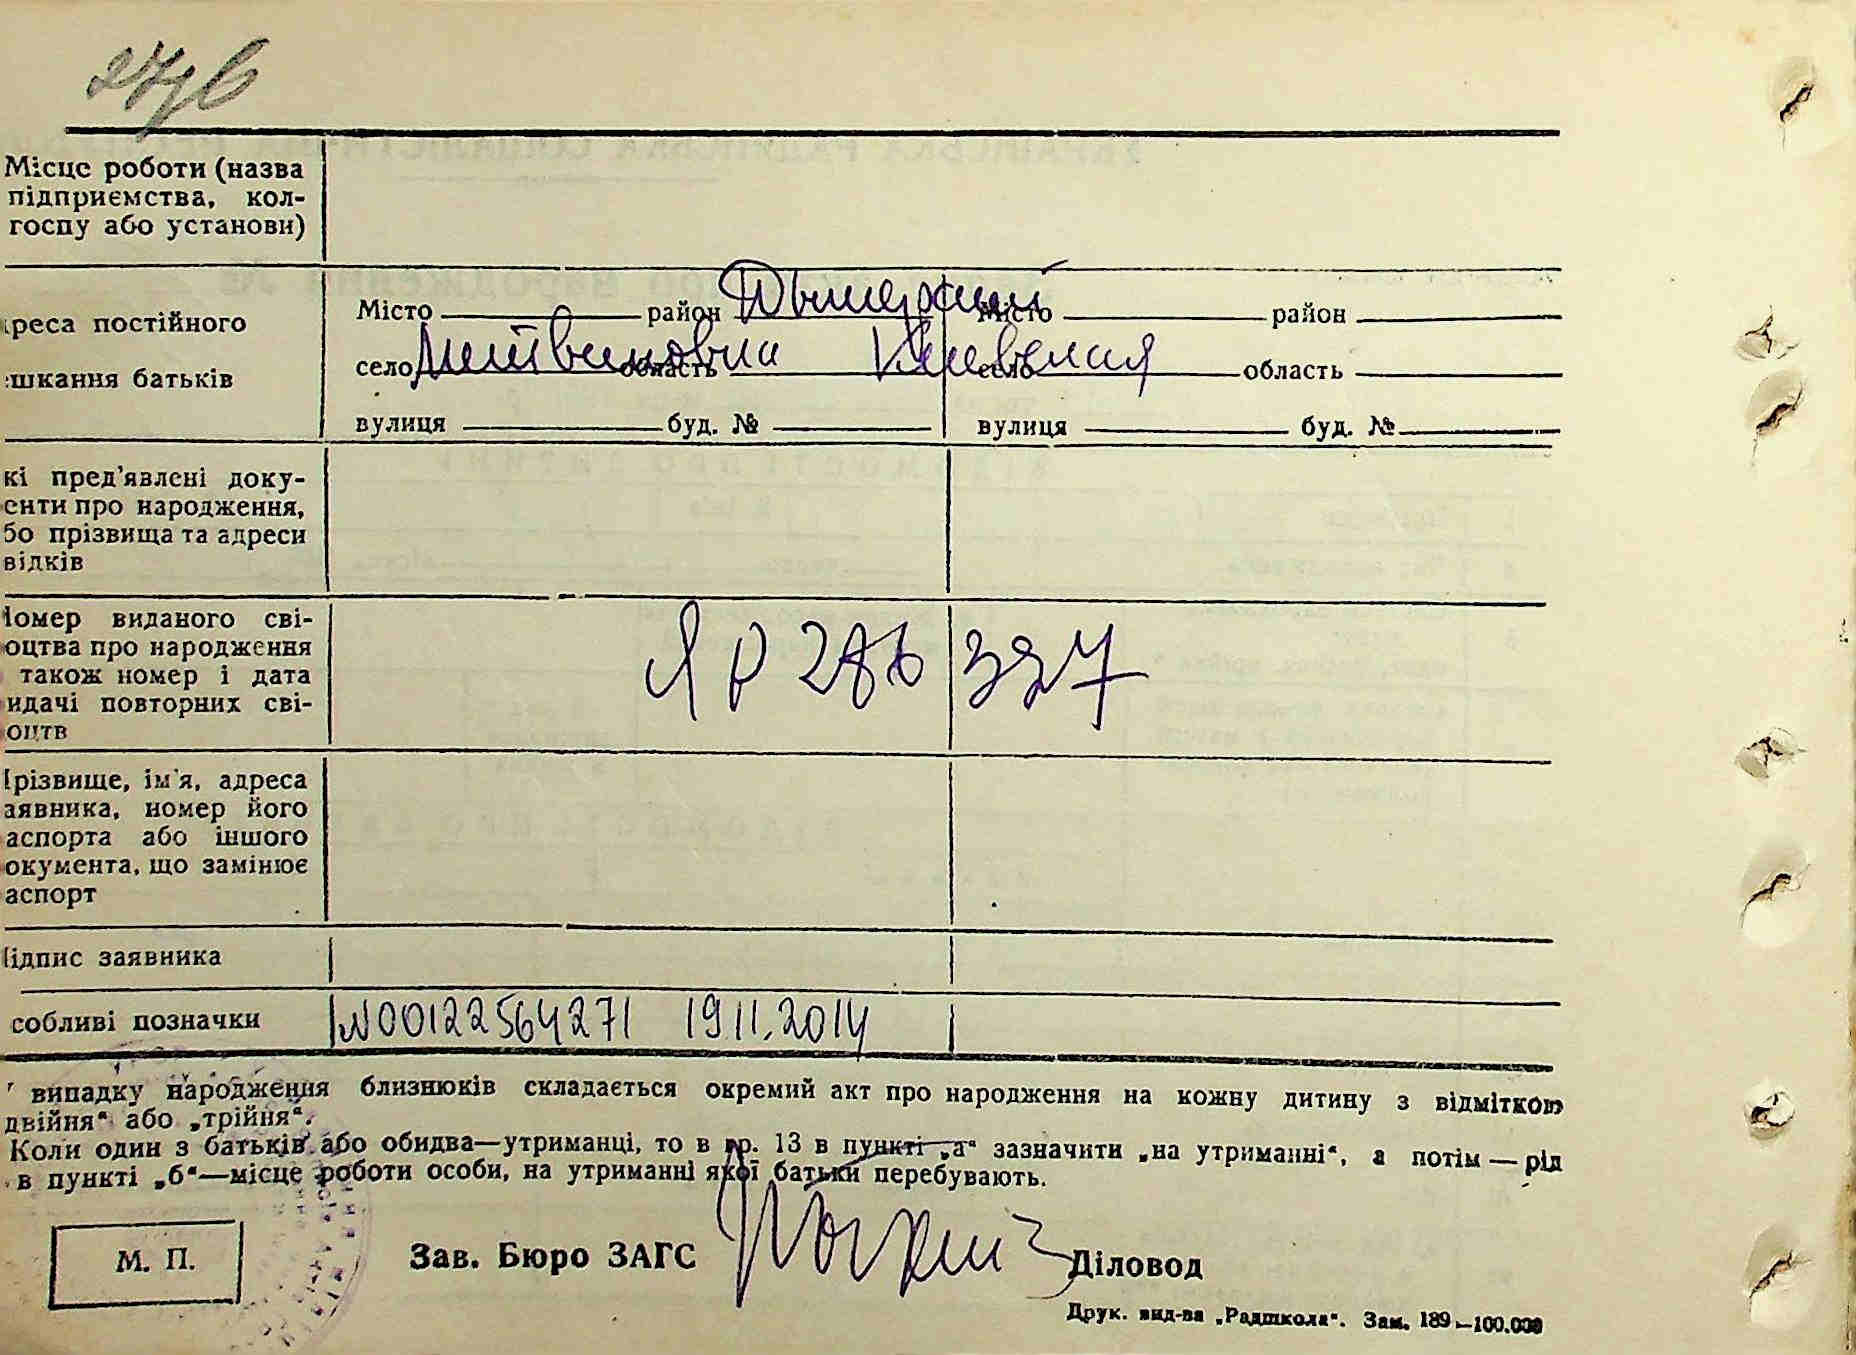 Місце роботи (назва
підприємства, кол-
госпу або установи)
реса постійного
шкання батьків
Місто район Дымерский
село Литвиновка область Киевская
вулиця буд. №
Місто район
село область
вулиця буд. №
кі пред'явлені доку-
енти про народження,
бо прізвища та адреси
відків
омер виданого сві-
оцтва про народження
також номер і дата
идачі повторних сві-
оцтв
327
різвище, ім'я, адреса
аявника, номер його
аспорта або іншого
окумента, що замінює
аспорт
ідпис заявника
собливі позначки
N00122564271 19.11.2014
випадку народження близнюків складається окремий акт про народження на кожну дитину з відміткою
двійня“ або „трійня“.
Коли один з батьків або обидва—утриманці, то в гр. 13 в пункті „а“ зазначити „на утриманні“, а потім — рід
в пункті „б“—місце роботи особи, на утриманні якої батьки перебувають.
М. П.
Зав. Бюро ЗАГС
Діловод
Друк. вид-ва „Радшкола“. Зам. 189—100.000